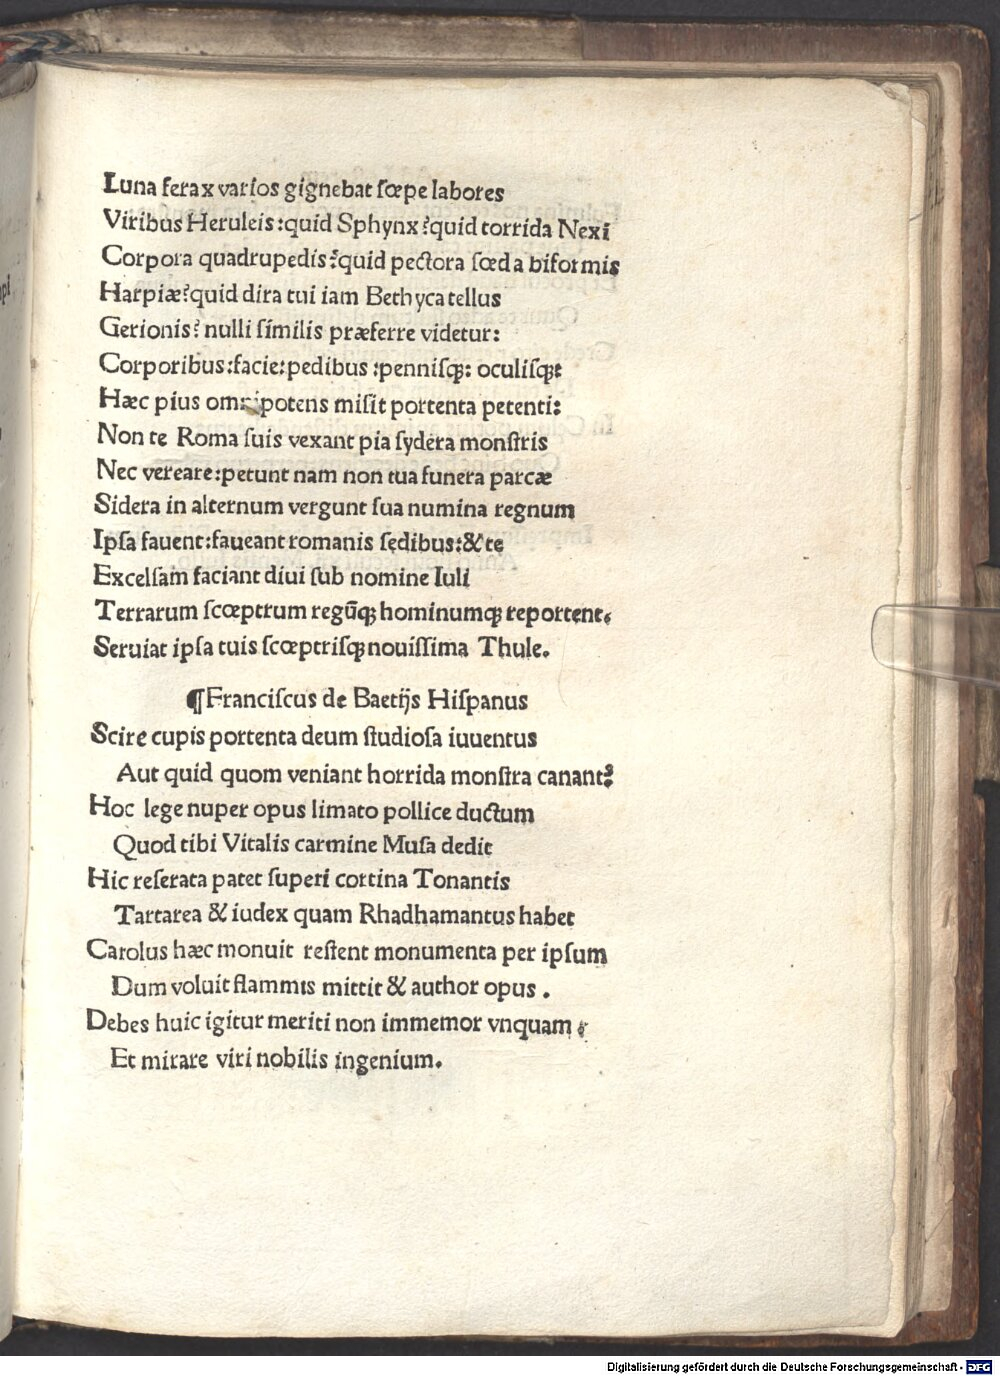 Luna ferax varios gignebat ſœpe labores
Viribus Heruleis:quid Sphynx?quid torrida Nexi
Corpora quadrupedis?quid pectora fœda biformis
Harpiæ?quid dira tui iam Bethyca tellus
Gerionis? nulli ſimilis præferre videtur:
Corporibus:facie:pedibus:penniſqꝫ: oculiſqꝫ:
Hæc pius omnipotens miſit portenta petenti:
Non te Roma ſuis vexant pia ſydera monſtris
Nec vereare:petunt nam non tua funera parcæ
Sidera in alternum vergunt ſua numina regnum
Ipſa fauent:faueant romanis ſędibus:& te
Excelſam faciant diui ſub nomine Iuli
Terrarum ſcœptrum regūqꝫ hominumqꝫ reportent.
Seruiat ipſa tuis ſcœptriſqꝫ nouiſſima Thule.
¶Franciſcus de Baetijs Hiſpanus
Scire cupis portenta deum ſtudioſa iuuentus
Aut quid quom veniant horrida monſtra canant?
Hoc lege nuper opus limato pollice ductum
Quod tibi Vitalis carmine Muſa dedit
Hic reſerata patet ſuperi cortina Tonantis
Tartarea & iudex quam Rhadhamantus habet
Carolus hæc monuit reſtent monumenta per ipſum
Dum voluit flammis mittit & author opus.
Debes huic igitur meriti non immemor vnquam
Et mirare viri nobilis ingenium.
Digitalisierung gefördert durch die Deutsche Forschungsgemeinschaft - DFG